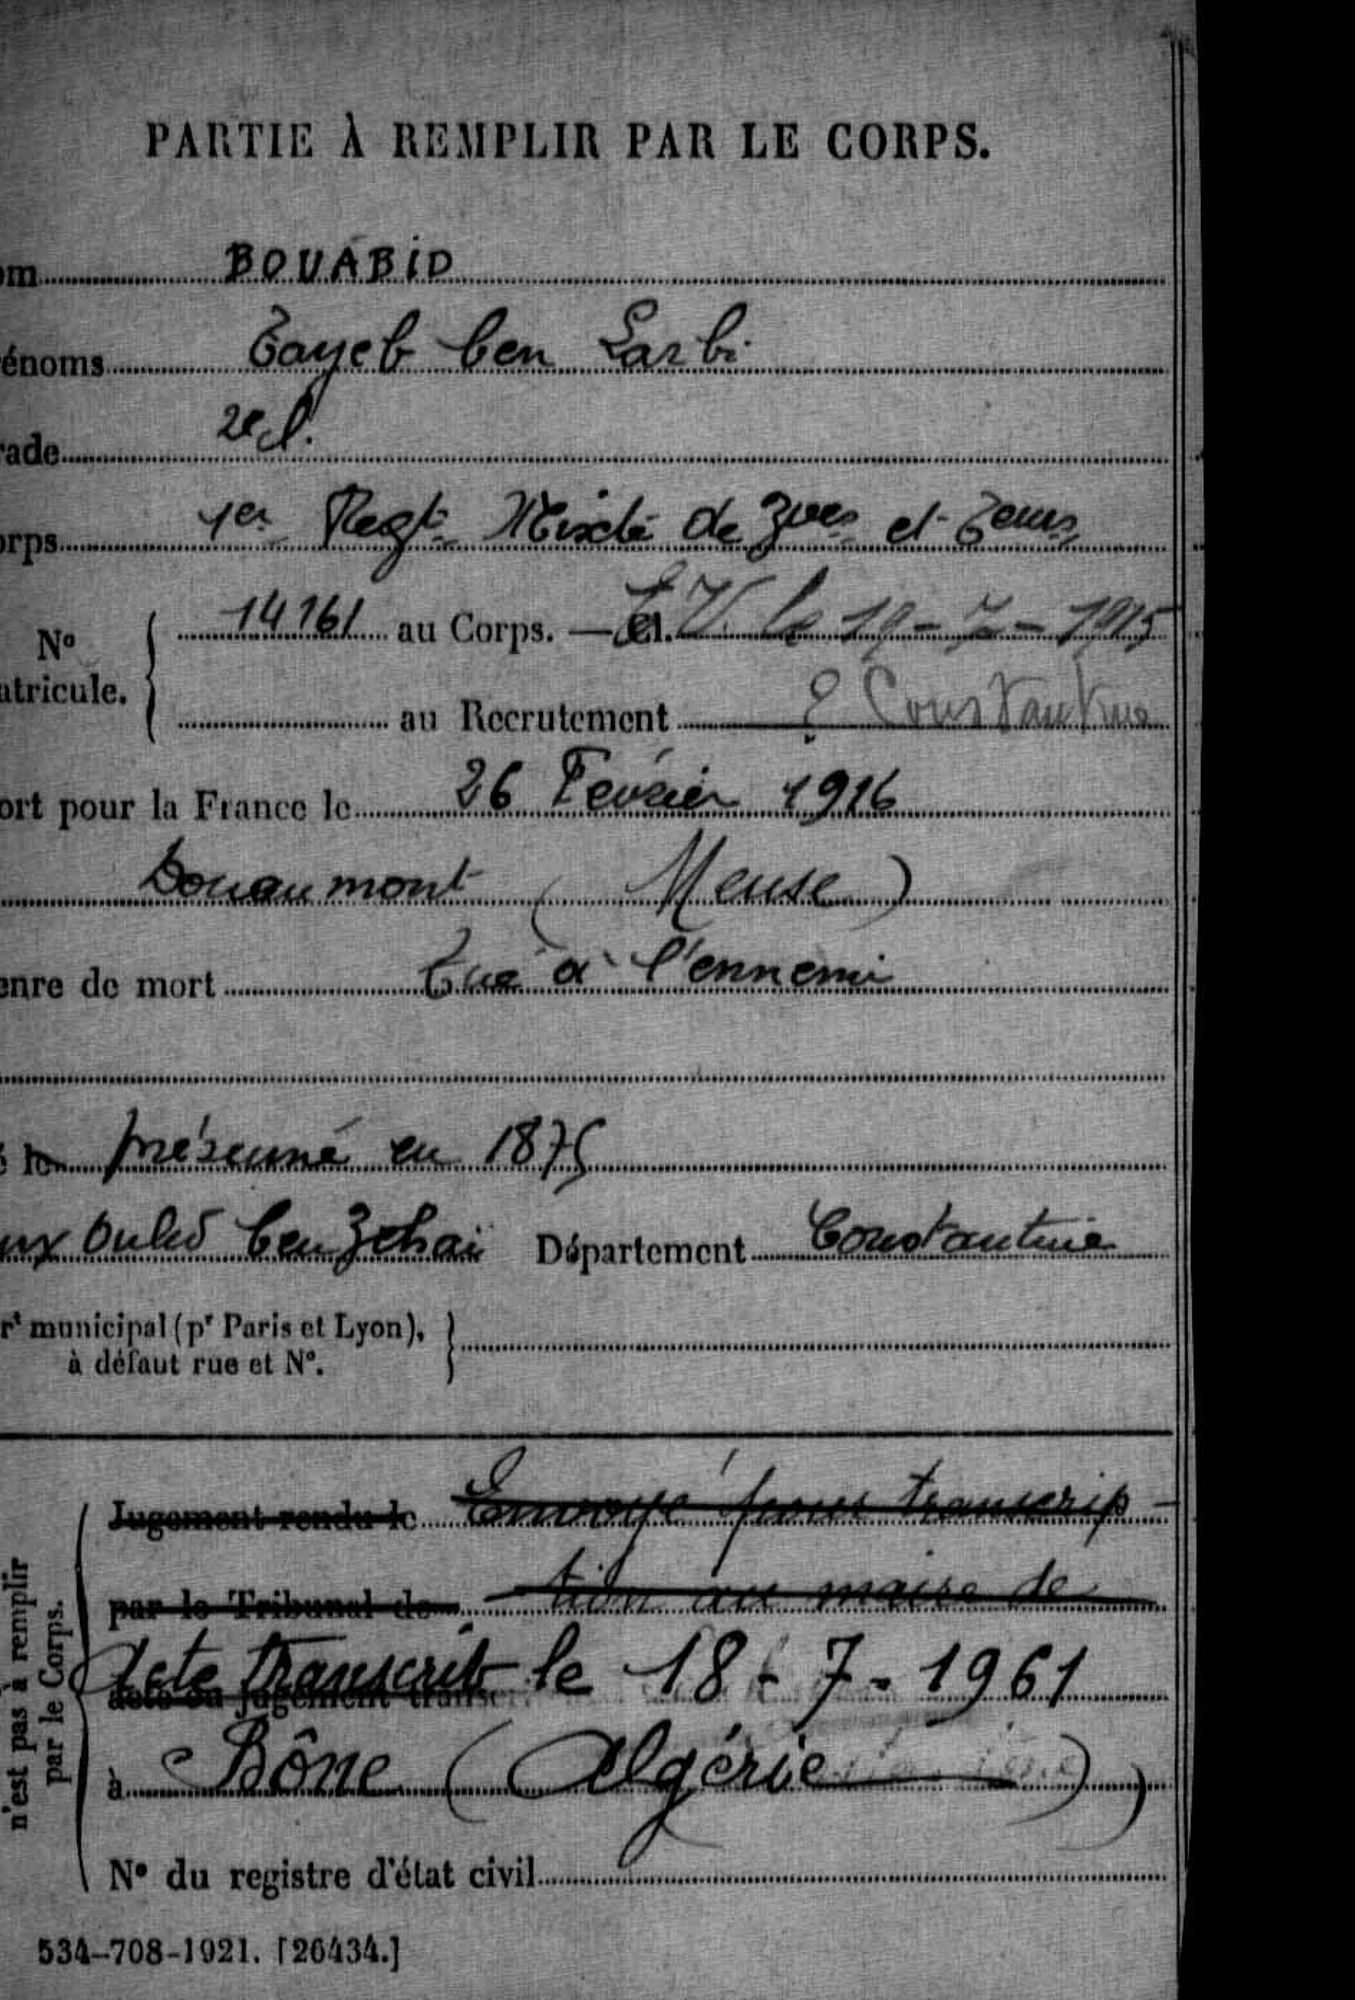 PARTIE À REMPLIR PAR LE CORPS.
om BOUABID
énoms Tayeb ben Larbi
ade 2e cl.
orps 1er Regt Mixte de Zves et Teurs
N°
atricule.
14161 au Corps. — Cl. E.V. le 19-7-1915
au Recrutement Constantine
ort pour la France le 26 Fevrier 1916
Douaumont (Meuse)
enre de mort Tué à l'ennemi
é le présumé en 1875
ux Ouled ben Département Constantine
rt municipal (pr Paris et Lyon),
à défaut rue et N°.
n'est pas à remplir
par le Corps.
Jugement rendu le Envoyé pour transcrip-
par le Tribunal de tion au maire de
acte ou jugement transc
Acte transcrit le 18-7-1961
à Bône (Algérie)
N° du registre d'état civil
534-708-1921. [26434.]